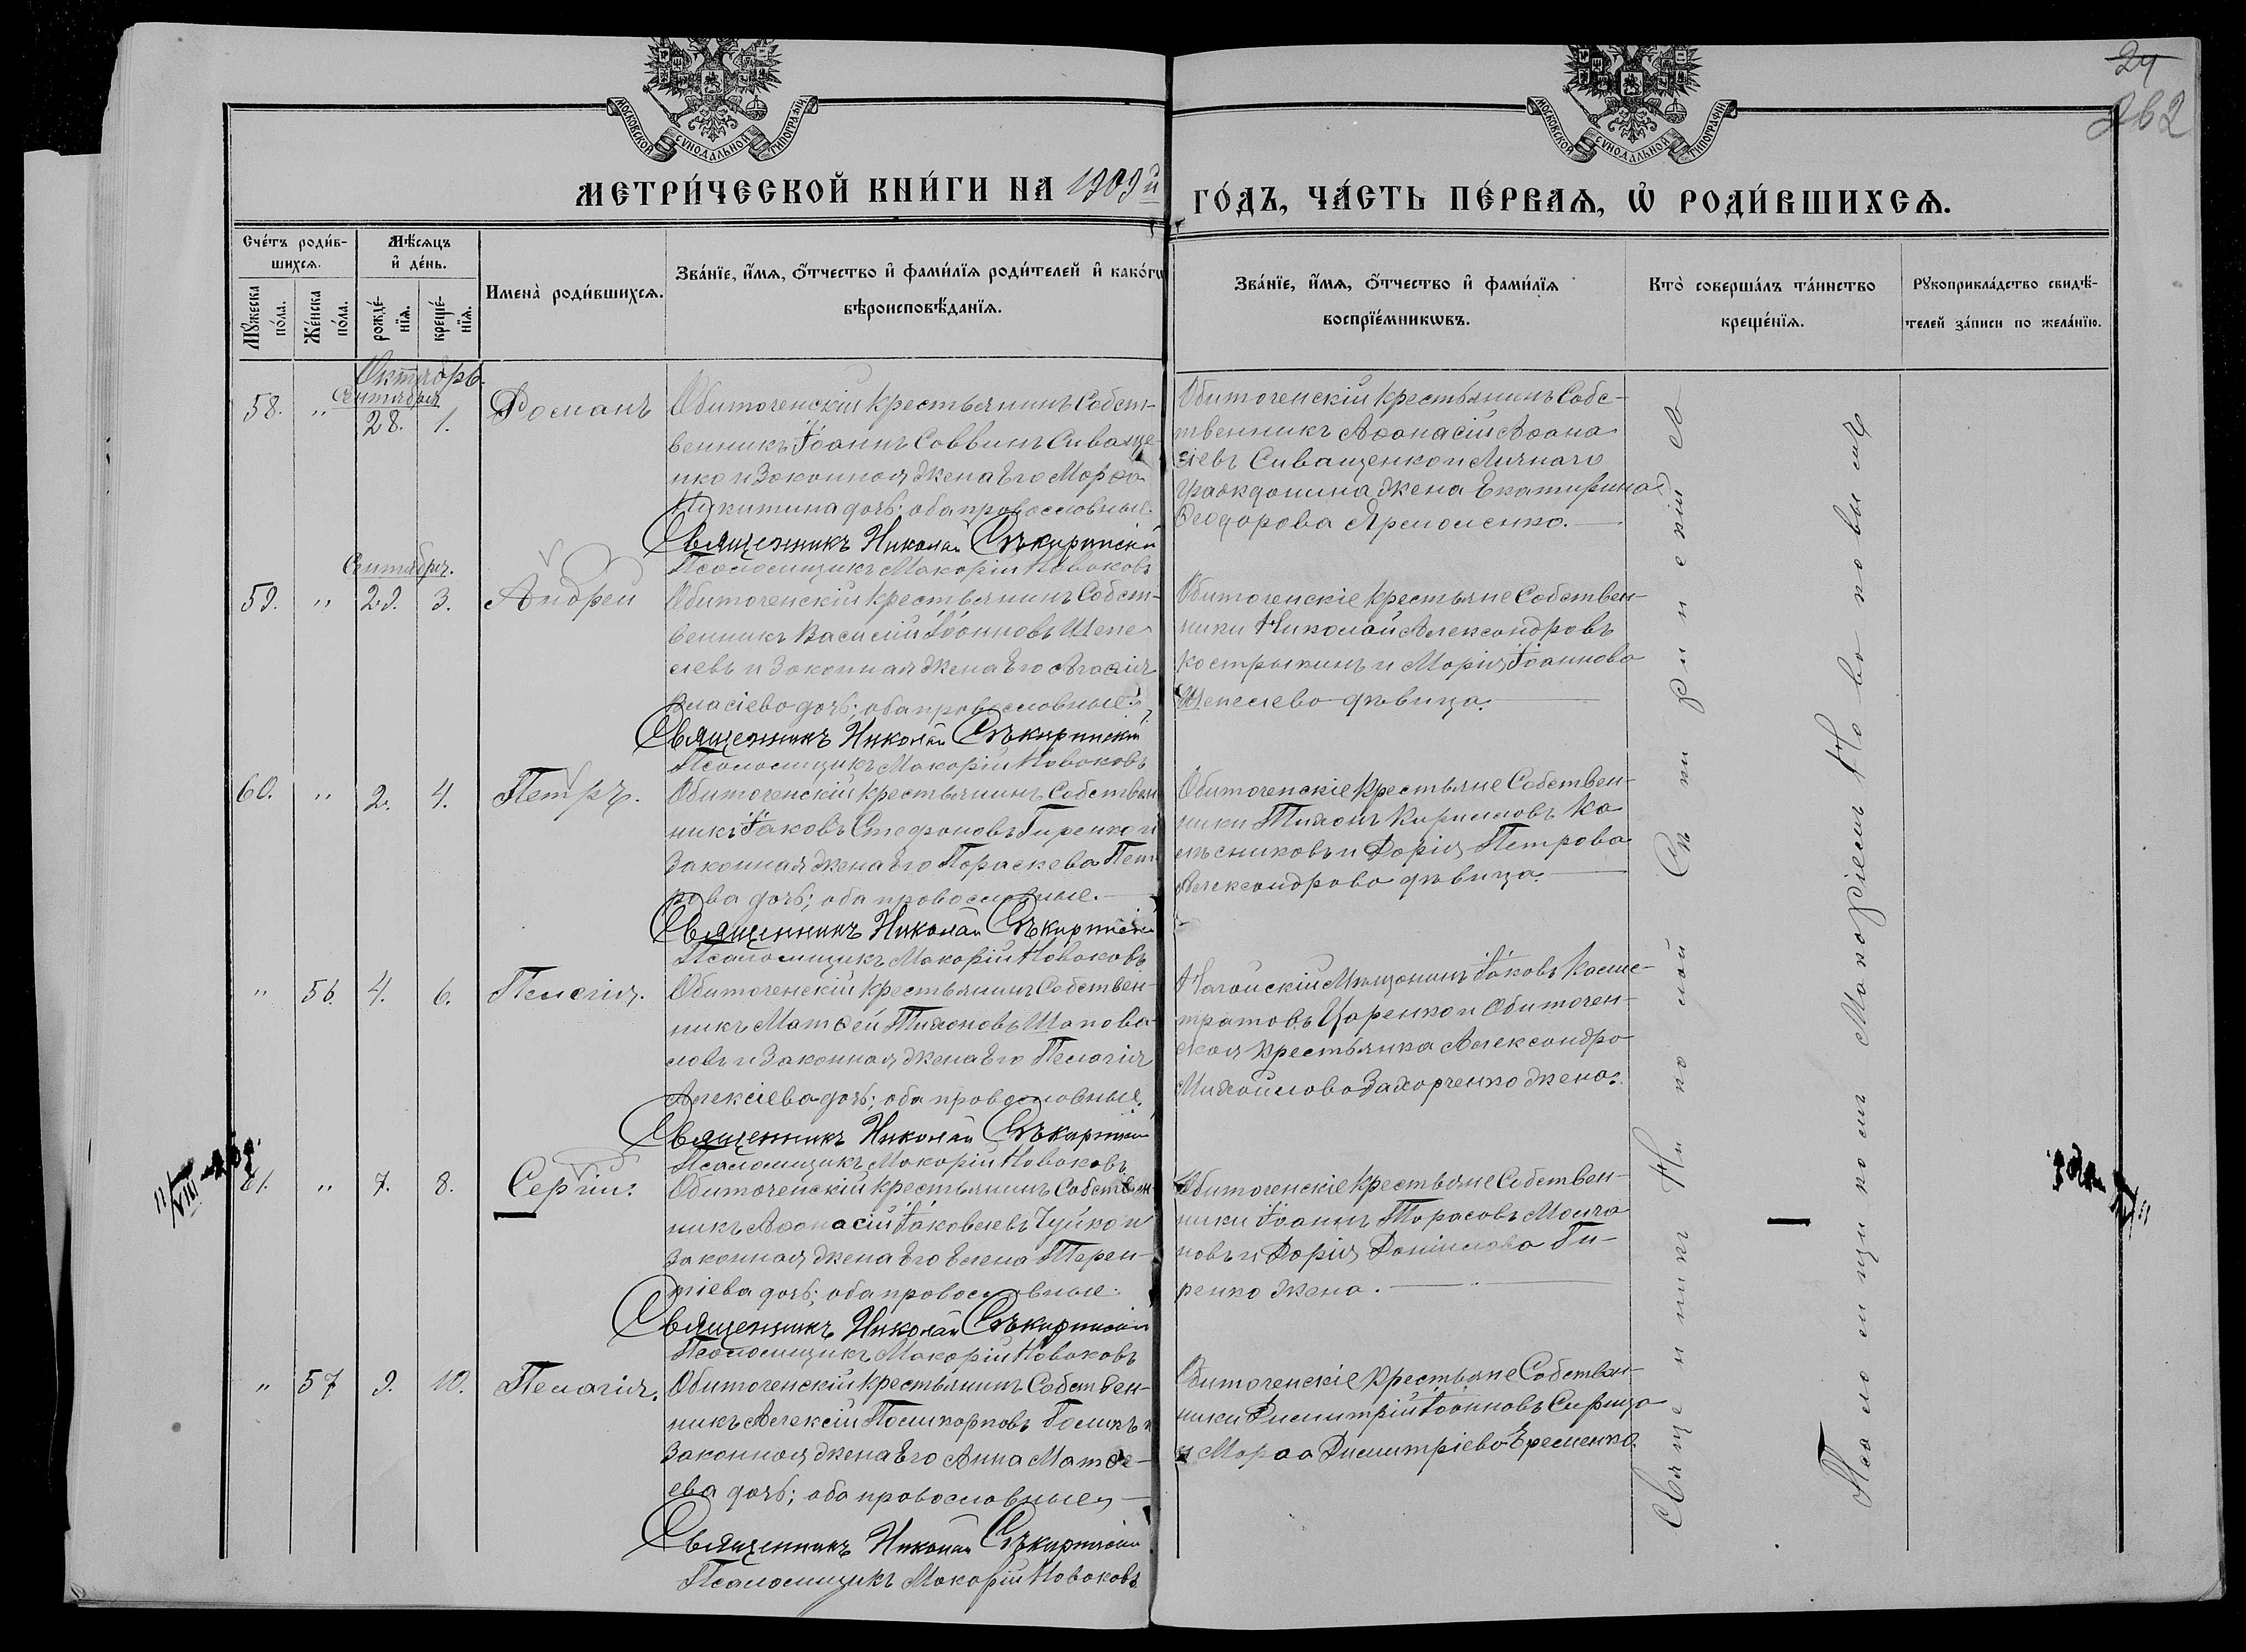 24
262
МОСКОВСКОЙ СУНОДАЛЬНОЙ ТИПОГРАФІИ
МОСКОВСКОЙ СУНОДАЛЬНОЙ ТИПОГРАФІИ
МЕТРИ́ЧЕСКОЙ КНИ́ГИ НА 1909й ГО́ДЪ, ЧА́СТЬ ПЕ́РВАѦ, Ѡ҆ РОДИ́ВШИХСѦ.
Сче́тъ роди́в-
шихсѧ.
Мꙋ́жеска по́ла.
Же́нска по́ла.
Мѣ́сѧцъ
и҆ де́нь.
рожде́-
нїѧ.
креще́-
нїѧ.
Имена̀ роди́вшихсѧ.
Зва́нїе, и҆́мѧ, ѻ҆́тчество и҆ фами́лїѧ роди́телей и҆ како́гѡ
вѣроисповѣ́данїѧ.
Зва́нїе, и҆́мѧ, ѻ҆́тчество и҆ фами́лїѧ
воспрїе́мникѡвъ.
Кто̀ соверша́лъ та́инство
креще́нїѧ.
Рꙋкоприкла́дство свидѣ́-
телей за́писи по жела́нїю.
Октябрь.
Сентября
58. " 28. 1. Романъ
Обиточенскій крестьянинъ Собст-
венникъ Іоаннъ Саввинъ Сиваще
нко и Законная жена Его Марѳа
Никитина дочь; оба православные
Священникъ Николай Сѣкиринскій
Псаломщикъ Макарій Новаковъ
Обиточенскій крестьянинъ Собс-
твенникъ Аѳанасій Аѳана
сіевъ Сиващенко и Личнаго
гражданина жена Екатирина
Ѳеодорова Ярмоленко.
Сентября.
59. " 29. 3. Андрей
Обиточенскій крестьянинъ Собст-
венникъ Василій Іоанновъ Шепе
левъ и Законная жена Его Агаѳія
Власіева дочь; оба православные
Священникъ Николай Сѣкиринскій
Псаломщикъ Макарій Новаковъ
Обиточенскіе крестьяне Собствен-
ники Николай Александровъ
Кострыкинъ и Марія Іоаннова
Шепелева дѣвица.
60. " 2. 4. Петръ.
Обиточенскій крестьянинъ Собствен
никъ Іаковъ Стефановъ Гиренко и
Законная жена Его Параскева Пет
рова дочь; оба православные.
Священникъ Николай Сѣкиринскій
Псаломщикъ Макарій Новаковъ
Обиточенскіе крестьяне Собствен-
ники Тихонъ Кирилловъ Ко
лѣсниковъ и Дарія Петрова
Александрова дѣвица.
" 56. 4. 6. Пелагія.
Обиточенскій крестьянинъ Собствен-
никъ Матѳей Тихоновъ Шапова
ловъ и Законная жена Его Пелагія
Алексіева дочь; оба православные.
Священникъ Николай Сѣкиринскій
Псаломщикъ Макарій Новаковъ
Ногайскій Мѣщанинъ Іаковъ Калис-
тратовъ Царенко и Обиточен-
ская крестьянка Александра
Михайлова Захарченко жена.
61. " 7. 8. Сергій.
Обиточенскій крестьянинъ Собствен
никъ Аѳанасій Іаковлевъ Чуйко и
Законная жена Его Елена Терен-
тіева дочь; оба православные.
Священникъ Николай Сѣкиринскій
Псаломщикъ Макарій Новаковъ
Обиточенскіе крестьяне Собствен-
ники Іоаннъ Тарасовъ Молча
новъ и Дарія Даніилова Ги-
ренко жена.
" 57 9. 10. Пелагія.
Обиточенскій крестьянинъ Собствен-
никъ Алексій Поликарповъ Голикъ и
Законная жена Его Анна Матѳе-
ева дочь; оба православные,
Священникъ Николай Сѣкиринскій
Псаломщикъ Макарій Новаковъ
Обиточенскіе крестьяне Собствен-
ники Димитрій Іоанновъ Сирица
и Марѳа Димитріева Еременко.
Священникъ Николай Сѣкиринскій съ
Псаломщикомъ Макаріемъ Новаковымъ